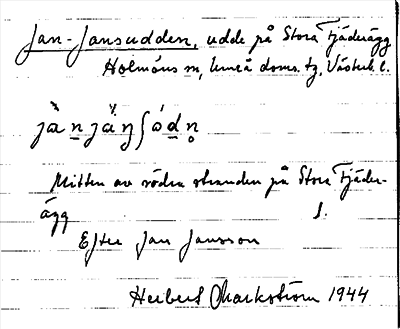 Jan-Jansudden, udde på Stora Fjäderägg
Holmöns sn, Umeå doms. tg. Västerb. l.
Mitten av södra stranden på Stora Fjäder-
ägg
Efter Jan Jansson
Herbert Markström 1944